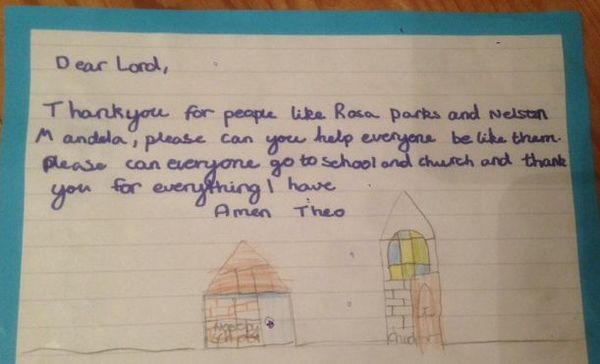 Dear Lord,
Thankyou for people like Rosa Parks and Nelson
Mandela, please can you help everyone be like them.
please can everyone go to school and church and thank
you for everything I have
Amen Theo
Church